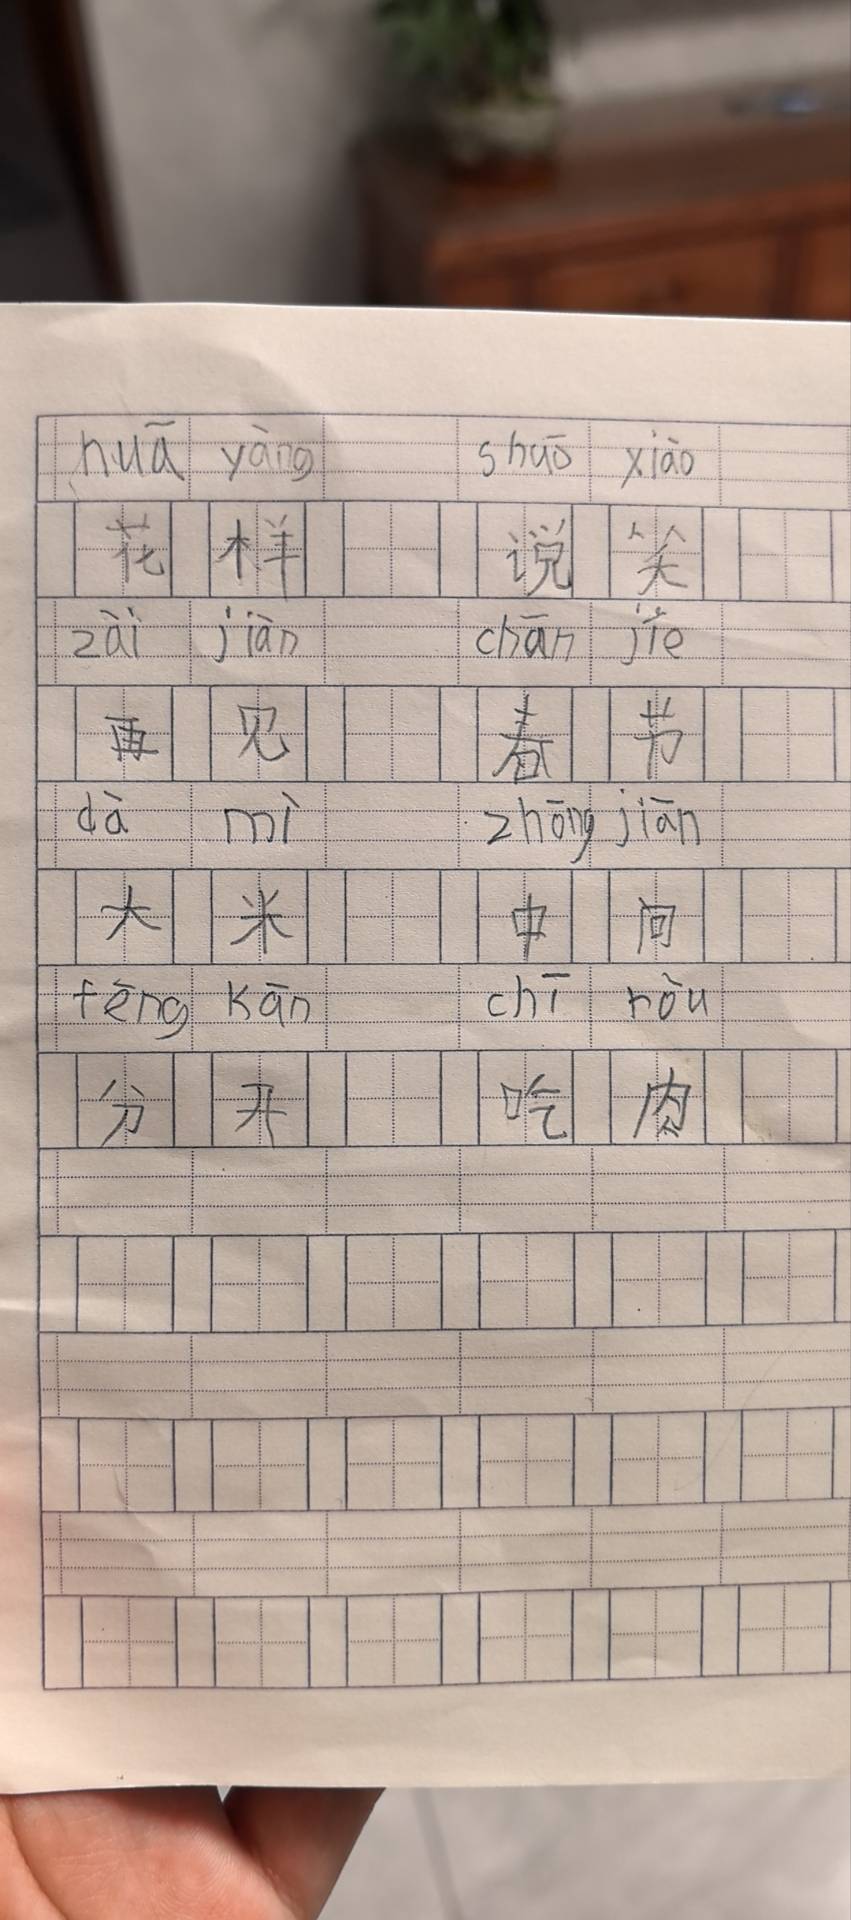 huā yàng shuō xiào
花样 说笑
zài jiàn chān jié
再见 春节
dà mì zhōng jiān
大米 中间
fēng kān chī ròu
分开 吃肉